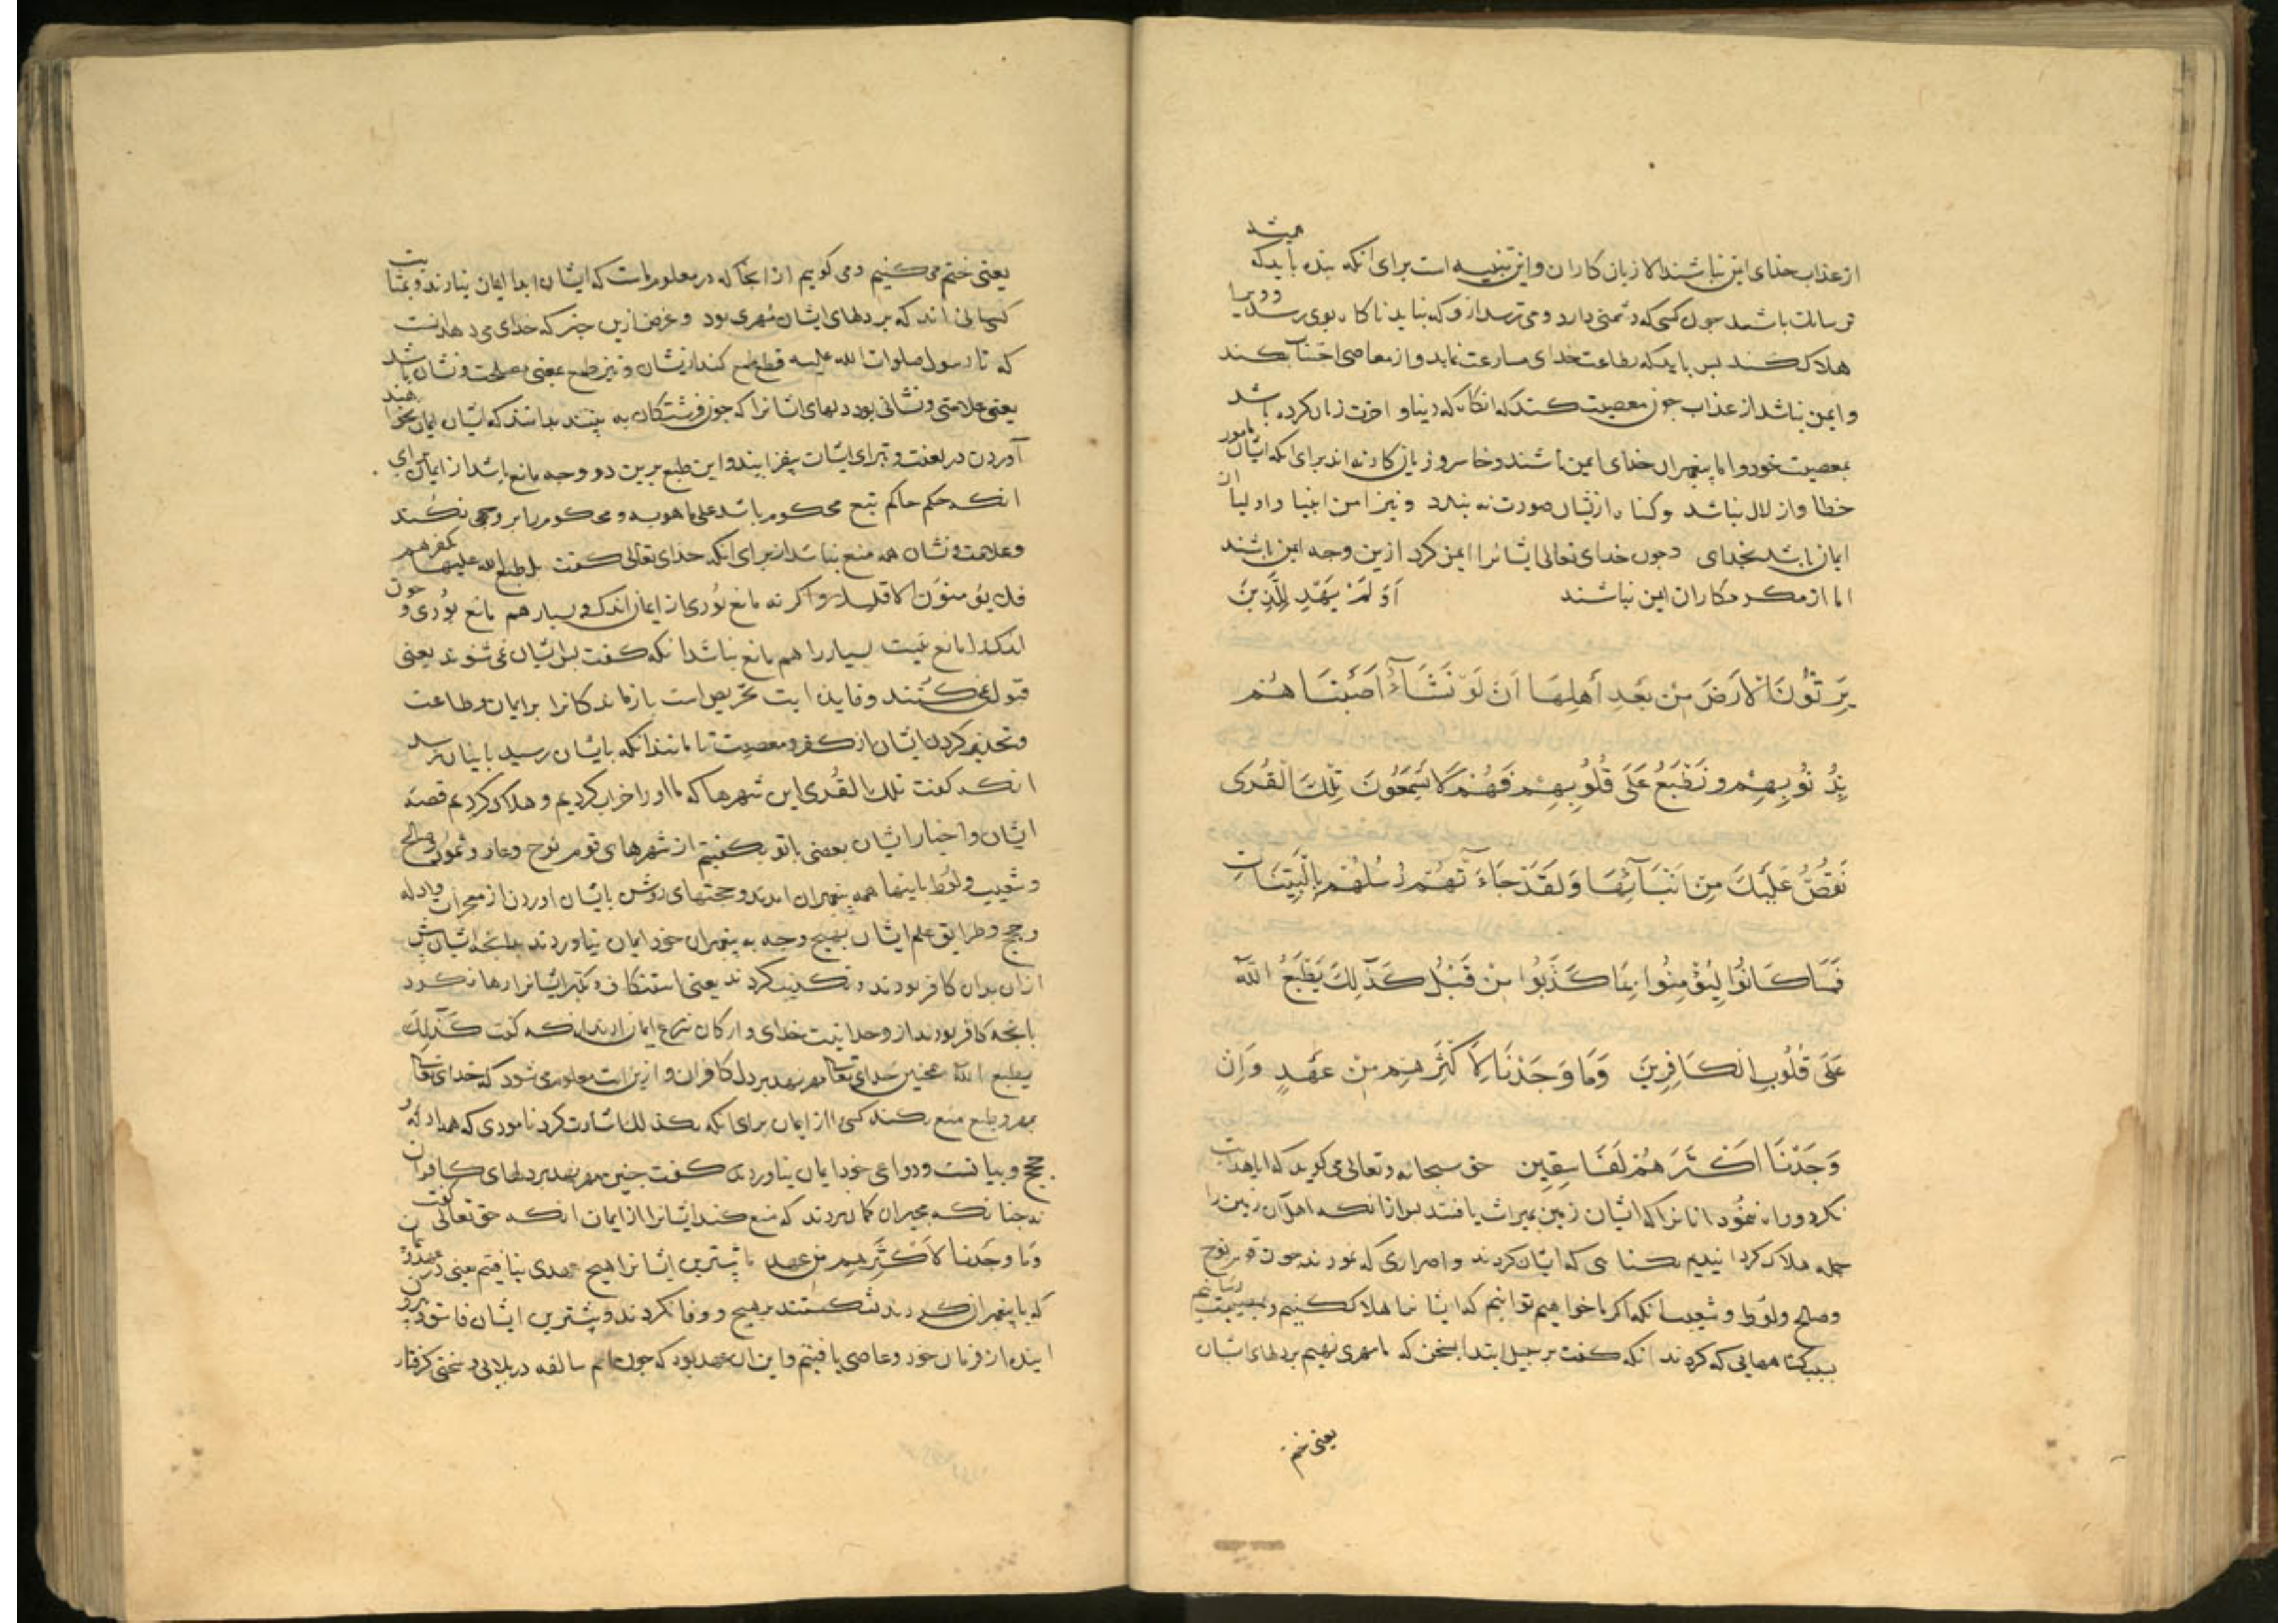 از عذاب خدای ایمن نباشند الا زیان کاران و این تنبیه است برای انکه بنده باید که همیشه
ترسان باشد چون کسی که دشمنی دارد و می ترسد ازو که نباید ناکاه بوی رسد و ویرا
هلاک کند بس باید که بطاعت خدای مسارعت نماید و از معاصی اجتناب کند
و ایمن نباشد از عذاب چون معصیت کند که انکاه که دنیا و اخرت زیان کرده باشد
بمعصیت خود و اما پیغمبران خدای ایمن باشند و خاسر و زیان کار نه اند برای انکه ایشان مامور
خطا و از لال نباشد و کناه ازیشان صورت نه بندد و نیز امن انبیا و اولیا ان
ایمان باشد بخدای و چون خدای تعالی ایشانرا ایمن کرد ازین وجه ایمن باشند
اما از مکر مکاران ایمن نباشند اَوَلَمْ يَهْدِ لِلَّذِينَ
يَرِثُونَ الْاَرْضَ مِنْ بَعْدِ اَهْلِهَا اَنْ لَوْ نَشَآءُ اَصَبْنَاهُمْ
بِذُنُوبِهِمْ وَنَطْبَعُ عَلَى قُلُوبِهِمْ فَهُمْ لَا يَسْمَعُونَ تِلْكَ الْقُرَى
نَقُصُّ عَلَيْكَ مِنْ اَنْبَآئِهَا وَلَقَدْ جَآءَتْهُمْ رُسُلُهُمْ بِالْبَيِّنَاتِ
فَمَا كَانُوا لِيُؤْمِنُوا بِمَا كَذَّبُوا مِنْ قَبْلُ كَذَلِكَ يَطْبَعُ اللّٰهُ
عَلَى قُلُوبِ الْكَافِرِينَ وَمَا وَجَدْنَا لِاَكْثَرِهِمْ مِنْ عَهْدٍ وَاِنْ
وَجَدْنَا اَكْثَرَهُمْ لَفَاسِقِينَ حق سبحانه و تعالی می کوید که ایا هدایت
نکرد و راه ننمود انانرا که ایشان زمین بمیراث یافتند بس ازانکه اهل آن زمین را
جمله هلاک کردانیدیم بکناهی که ایشان کردند و اصراری که نمودند چون قوم نوح
و صالح و لوط و شعیب انکه اکر ما خواهیم توانیم که ایشانرا هلاک کنیم و بمصیبت رسانیم
بسبب کناههایی که کردند انکه کفت بر سبیل ابتدا سخن که ما مهری نهیم بر دلهای ایشان
یعنی ختم
یعنی ختم می کنیم و می کوییم از انجا که در معلوم ماست که ایشان ابدا ایمان نیارند و بمثابت
کسانی اند که بر دلهای ایشان مهری بود و غرض ازین خبر که خدای می دهد انست
که تا رسول صلوات الله علیه قطع طمع کند ازیشان و نیز طبع بمعنی مصلحت و نشان باشد
یعنی علامتی و نشانی بود دلهای ایشانرا که چون فرشتکان به بینند بدانند که ایشان ایمان نخواهند
آوردن در لعنت و تبرای ایشان بیفزایند و این طبع برین دو وجه مانع باشد از ایمان برای
انکه حکم حاکم تبع محکوم باشد علی ما هو به و محکوم را بر وجهی نکند
و علامت و نشان هم منع نباشد از برای انکه خدای تعالی کفت بل طبع الله علیها بکفرهم
فلا یؤمنون الا قلیلا و اکر نه مانع بودی از ایمان اندک و بسیار هم مانع بودی و چون
اندک را مانع نیست بسیار را هم مانع نباشد انکه کفت بس ایشان نمی شنوند یعنی
قبول نمی کنند و فایده ایت تحریص است بازماندکانرا بر ایمان و طاعت
و تحذیر کردن ایشان از کفر و معصیت تا مانند انکه بایشان رسید باینان نرسد
انکه کفت تلک القری این شهرها که ما اورا خراب کردیم و هلاک کردیم قصه
ایشان و اخبار ایشان بعضی با تو بکفتیم از شهرهای قوم نوح و عاد و ثمود و صالح
و شعیب و لوط باینها همه پیغمبران امدند و حجتهای روشن بایشان اوردند از معجزات و ادله
و حجج و طرایق علم ایشان بهیچ وجه به پیغمبران خود ایمان نیاوردند بدانچه ایشان پیش
ازان بدان کافر بودند و تکذیب کردند یعنی استنکاف و تکبر ایشانرا رها نکرد
بانچه کافر بودند از وحدانیت خدای و ارکان شرع ایمان ارند انکه کفت كَذَلِكَ
یطبع الله همچنین خدای تعالی مهر نهد بر دل کافران و ازین ایت معلوم می شود که خدای تعالی
بمهر و طبع منع نکند کسی را از ایمان برای انکه بکذلک اشارت کرد نامودی که همه ادله و
حجج و بیانست و دواعی خود ایمان نیاوردند کفت چنین مهر نهد بر دلهای کافران
نه چنانکه مجبران کمان بردند که منع کند ایشانرا از ایمان انکه حق تعالی کفت
وَمَا وَجَدْنَا لِاَكْثَرِهِمْ مِنْ عَهْدٍ ما بیشترین ایشانرا هیچ عهدی نیافتیم یعنی در عهد
که با پیغمبران کردند بشکستند بهیچ و وفا نکردند و بیشترین ایشان فاسق و بیرون
اینده از فرمان خود و عاصی یافتیم و این ان عهد بود که چون امم سالفه در بلایی و سختی کرفتار